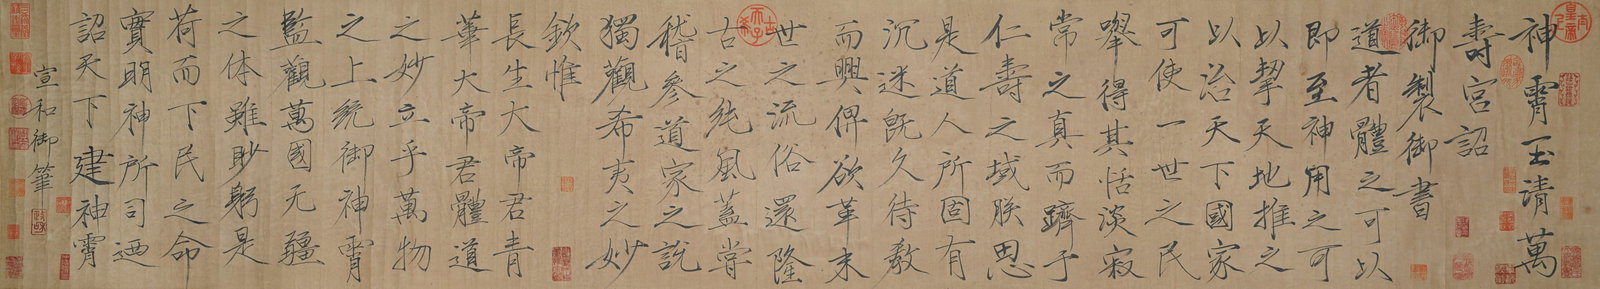 神霄玉清萬
壽宮詔
御製御書
道者體之可以
即至神用之可
以挈天地推之
以治天下國家
可使一世之民
舉得其恬淡寂
常之真而躋于
仁壽之域朕思
是道人所固有
沉迷既久待教
而興俾欲革末
世之流俗還隆
古之純風蓋嘗
稽參道家之說
獨觀希夷之妙
欽惟
長生大帝君青
華大帝君體道
之妙立乎萬物
之上統御神霄
監觀萬國无疆
之休雖眇躬是
荷而下民之命
實明神所司迺
詔天下建神霄
宣和御筆